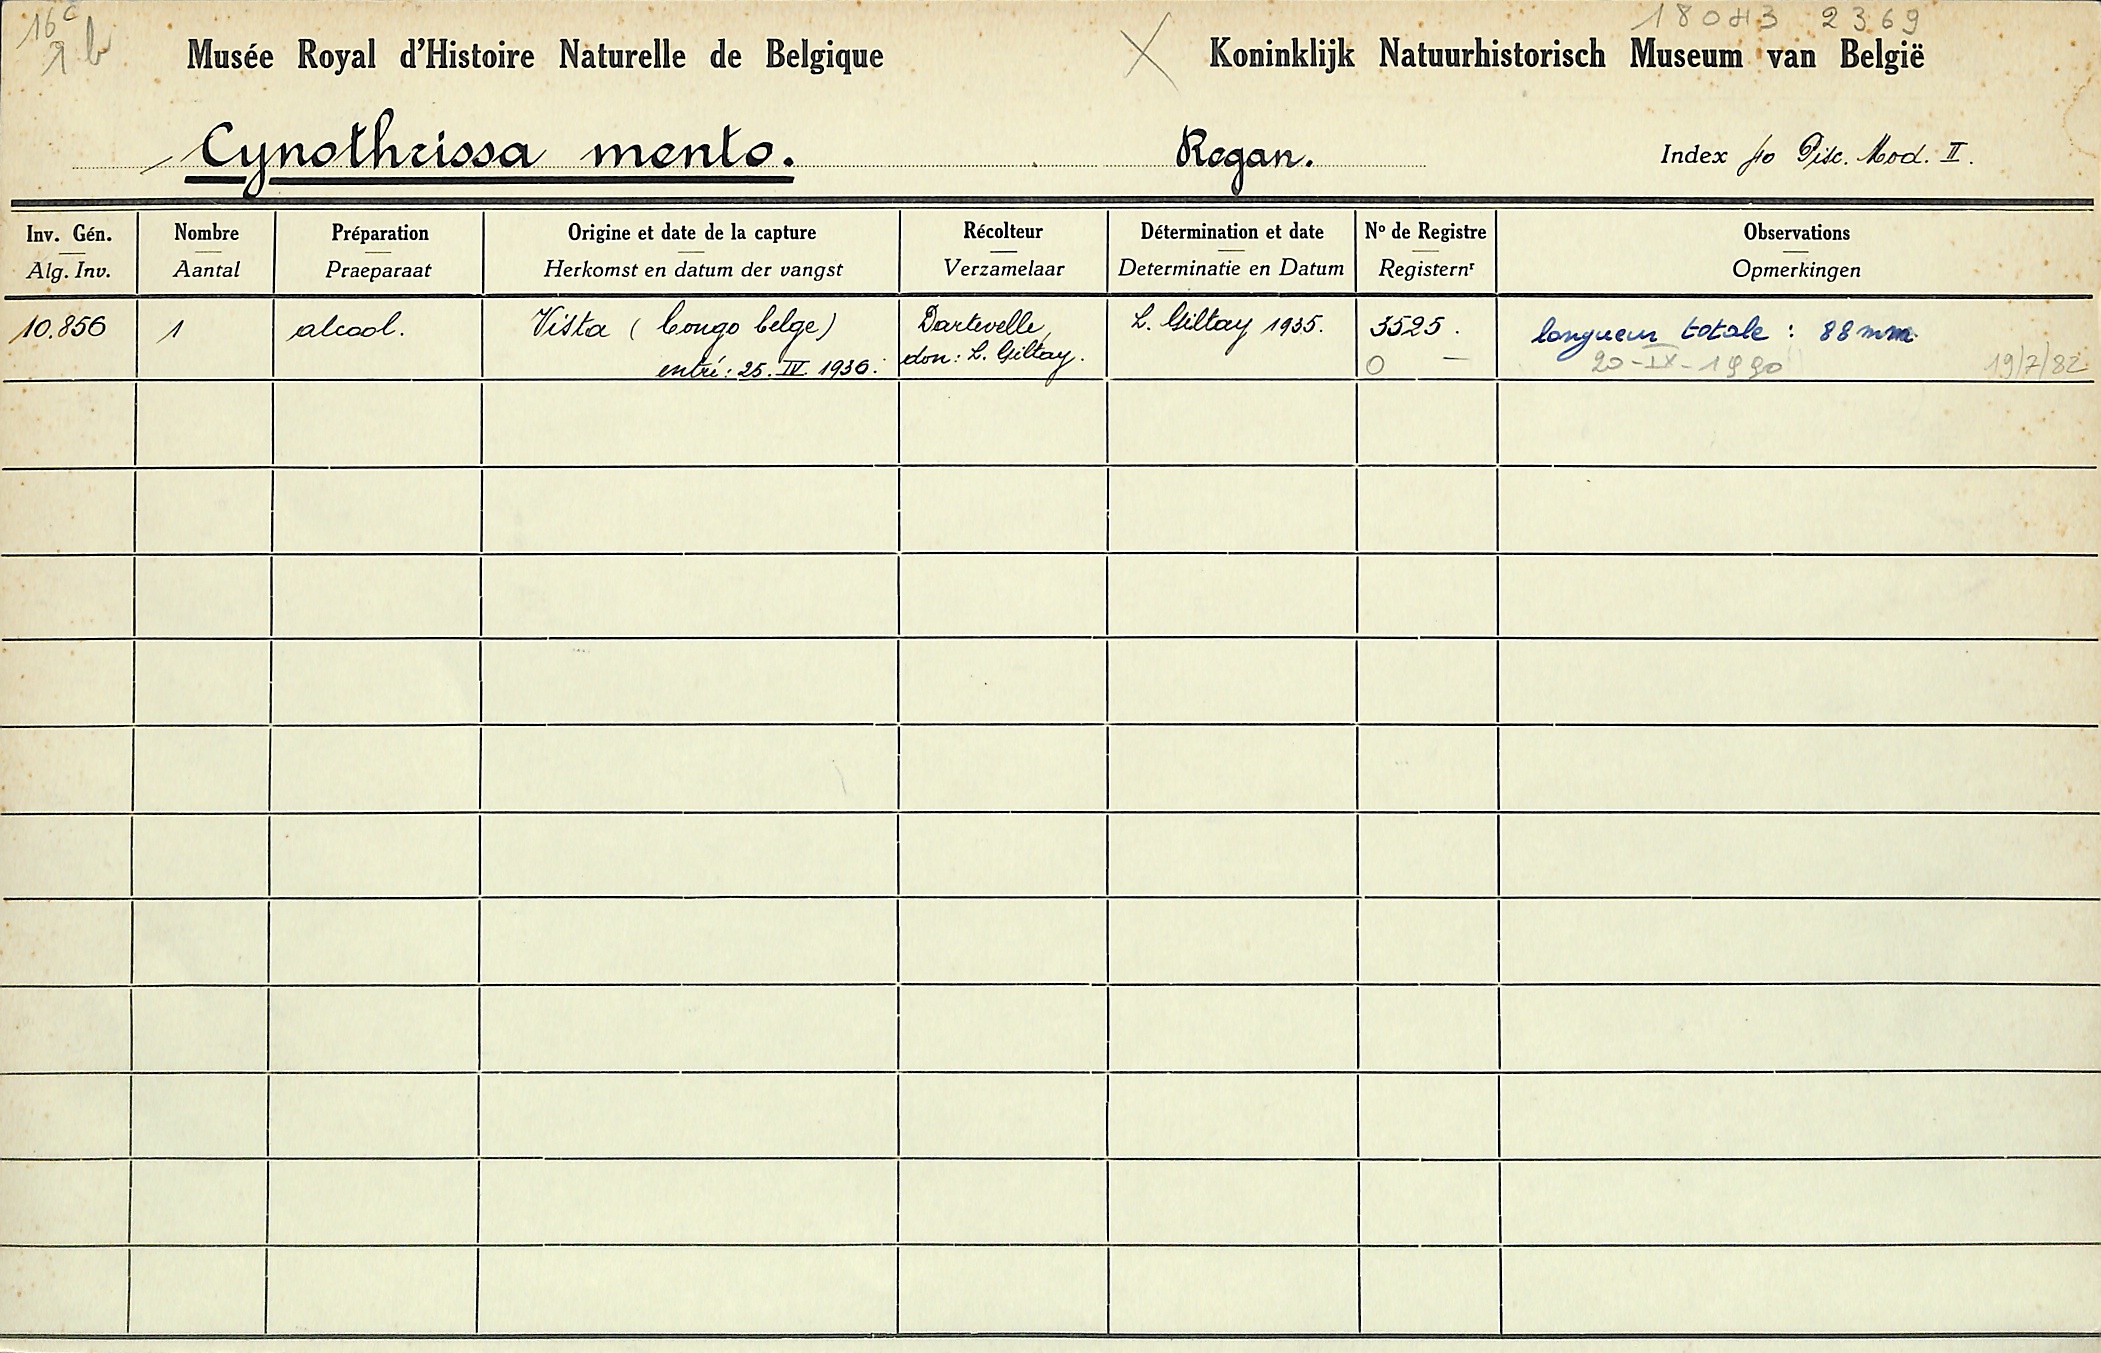 16c
9b
18043 2369
Musée Royal d'Histoire Naturelle de Belgique
Koninklijk Natuurhistorisch Museum van België
Cynothrissa mento. Regan. Index fo Pisc. Mod. II.
Inv. Gén. Nombre Préparation Origine et date de la capture Récolteur Détermination et date No de Registre Observations
Alg. Inv. Aantal Praeparaat Herkomst en datum der vangst Verzamelaar Determinatie en Datum Registernr Opmerkingen
10.856 1 alcool. Vista (Congo belge) Dartevelle, L. Giltay 1935. 3525. longueur totale : 88 mm
entré: 25. IV. 1936. don: L. Giltay. O — 20-IX-1990 19/7/82